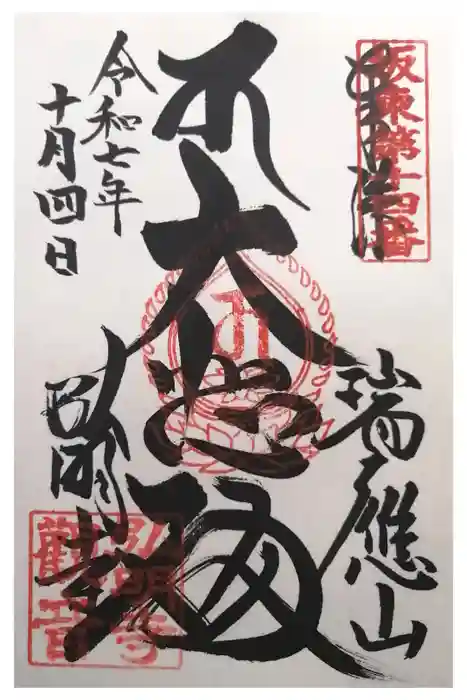 坂東第十四番
奉拝
瑞應山
大悲殿
弘明寺
弘明寺
觀音
令和七年
十月四日